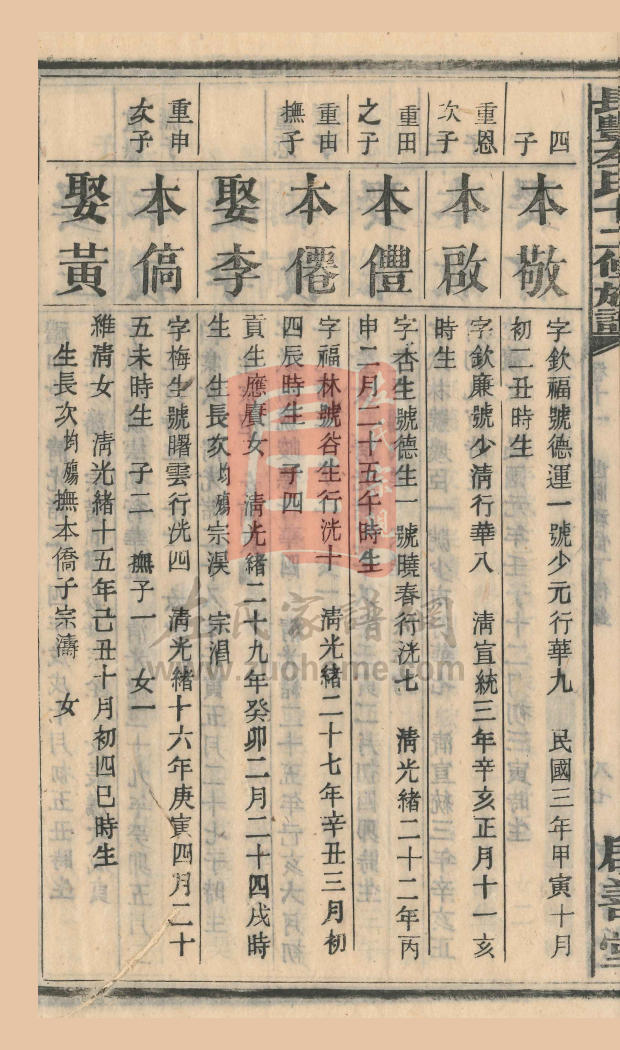 長豐左氏十二修族譜
啟善堂
四
子
本敬
字欽福號德運一號少元行華九　民國三年甲寅十月
初二丑時生
重恩
次子
本啟
字欽廉號少清行華八　清宣統三年辛亥正月十一亥
時生
重田
之子
本禮
字杏生號德生一號曉春行洸七　清光緒二十二年丙
申二月二十五午時生
重由
撫子
本僊
字福林號谷生行洸十　清光緒二十七年辛丑三月初
四辰時生　子四
娶李
貢生應賡女　清光緒二十九年癸卯二月二十四戌時
生　生長次均殤宗淏　宗淐
重申
次子
本偩
字梅生號曙雲行洸四　清光緒十六年庚寅四月二十
五未時生　子二　撫子一　女一
娶黃
維清女　清光緒十五年己丑十月初四巳時生
生長次均殤撫本僑子宗濤　女
左氏家譜網
www.zuohome.com